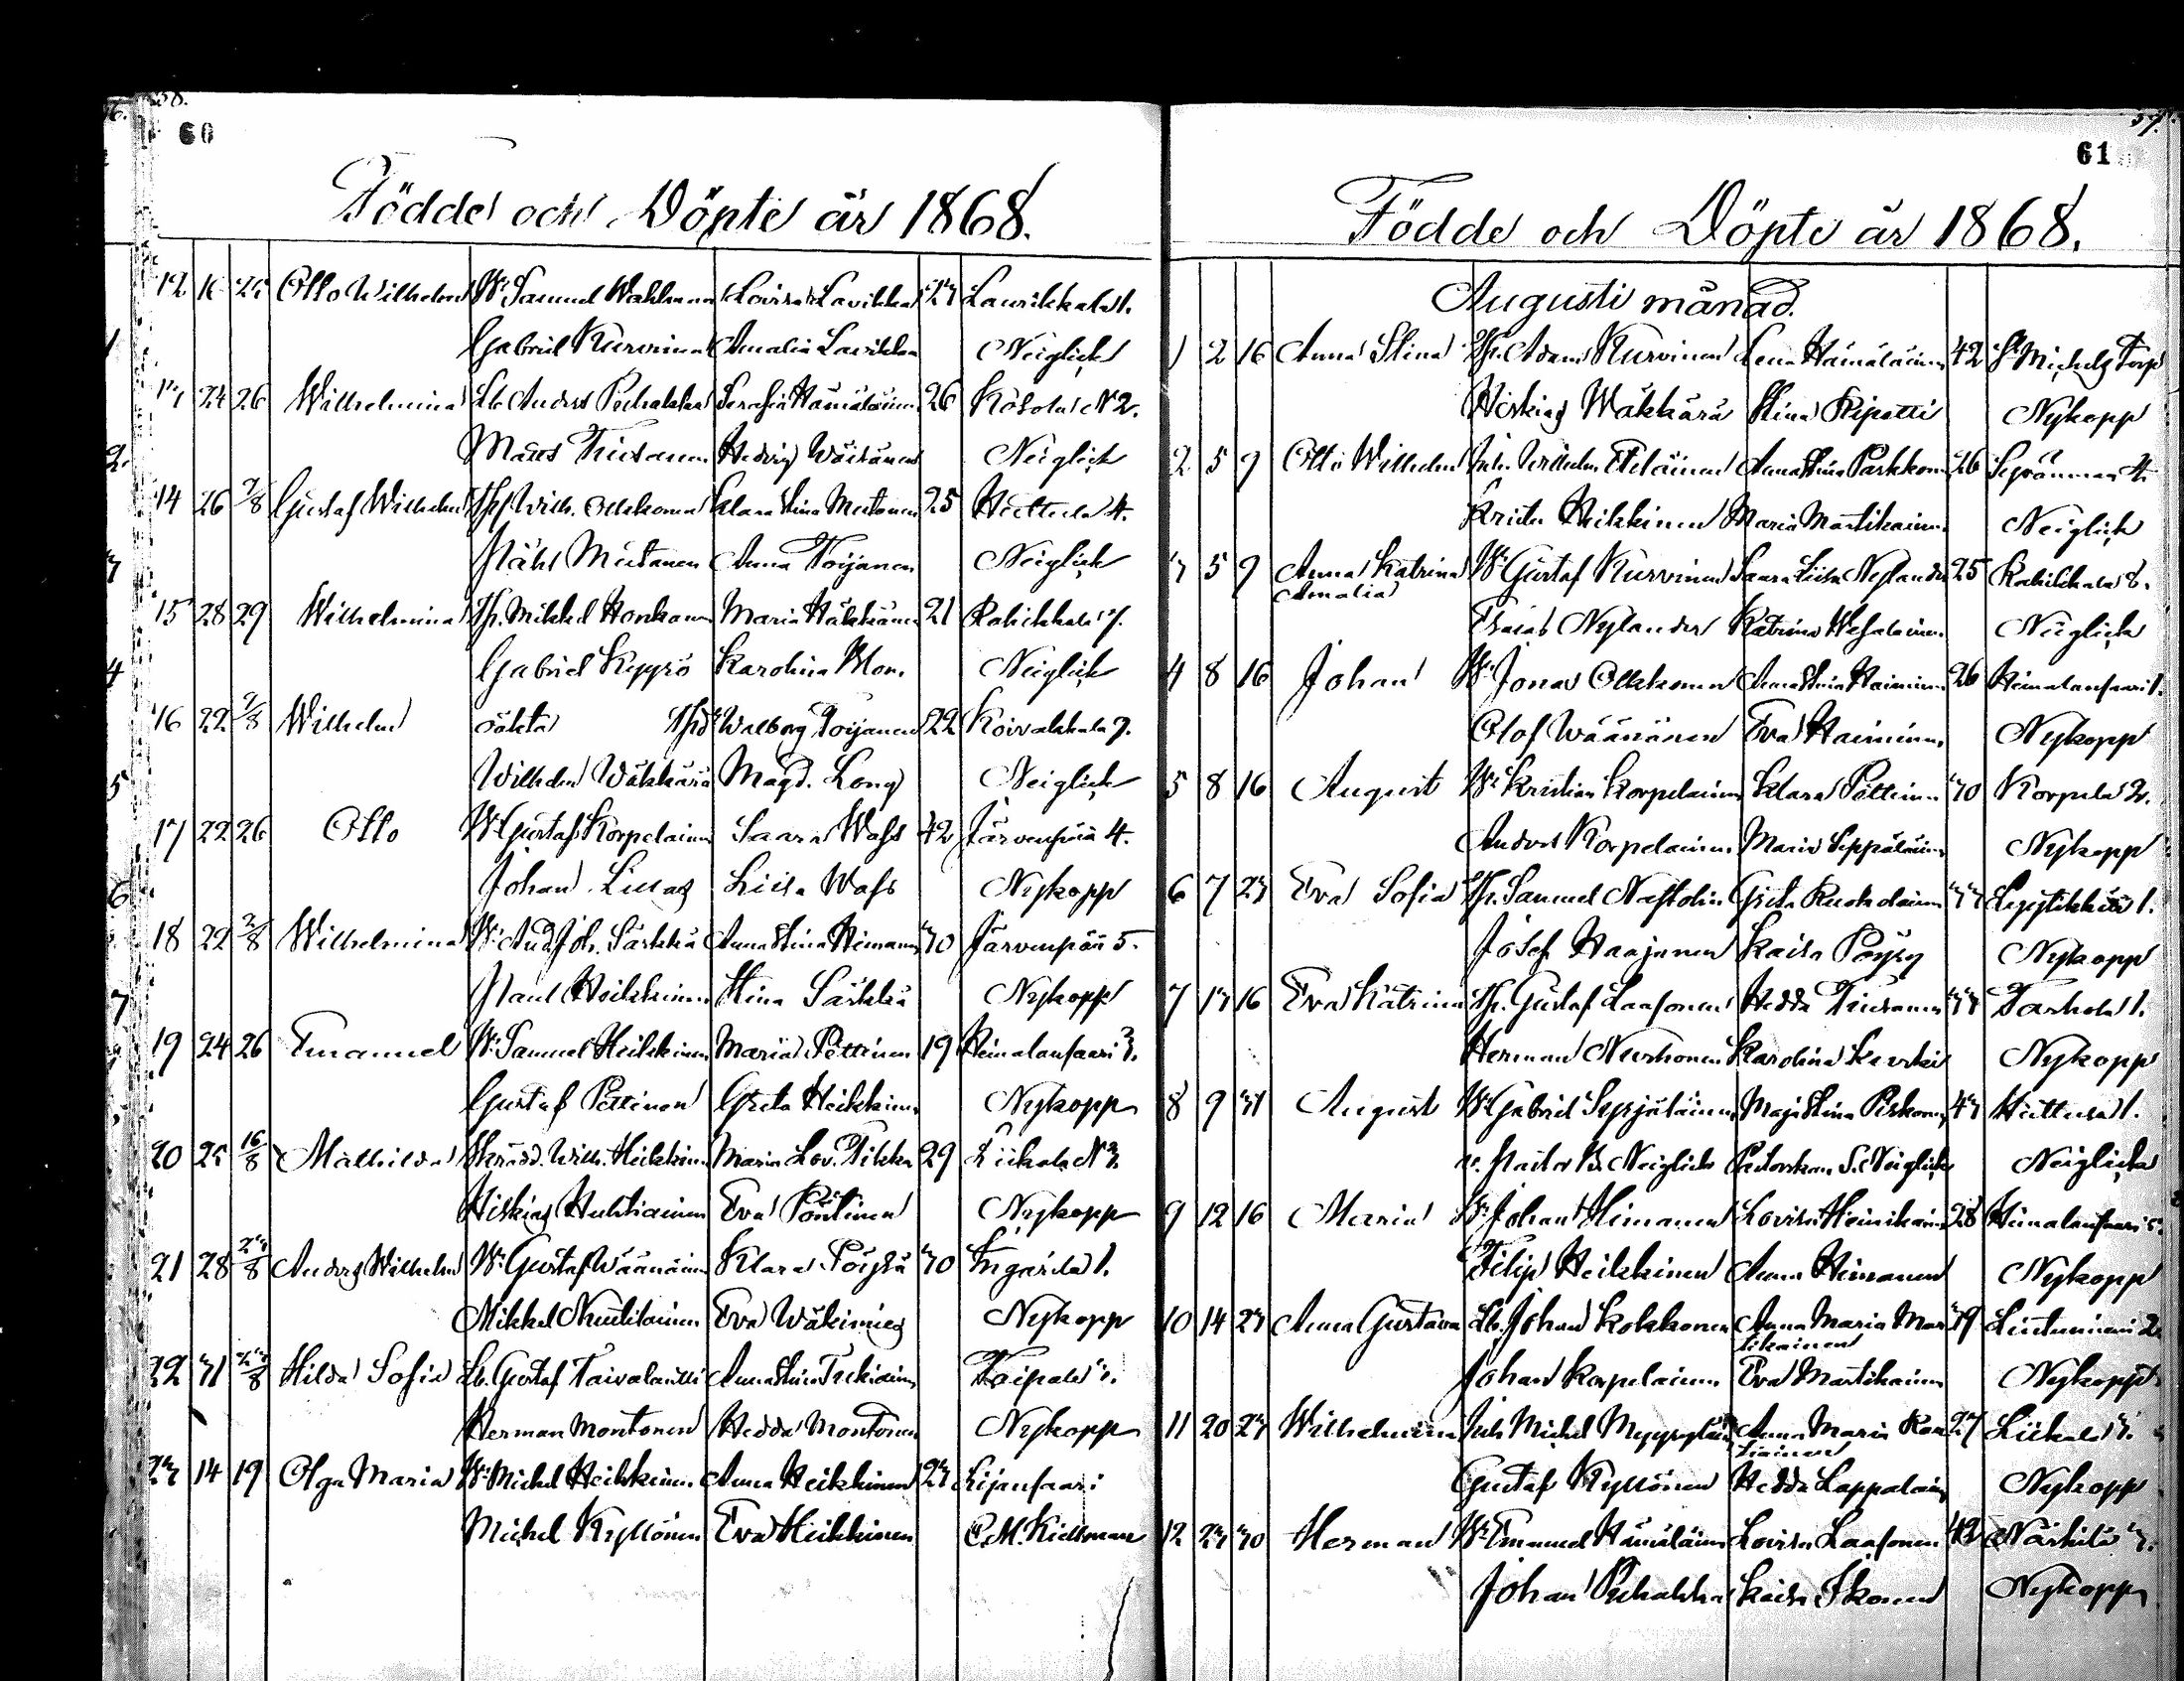 58.
60
Födde och Döpte år 1868.
12 16 Otto Wilhelm Samuel Lovisa Lavikka 27 Laurikkala 1.
Gabriel Kurvinen Amalia Lavikka Neiglick
24 26 Wilhelmina Lb. Anders Pehakka Serafia Hämäläinen 26 Kösölä N 2.
Matts Tiusanen Hedvig Wäisänen Neiglick
14 26 2/8 Gustaf Wilhelm Wilh. Ollikonen Klara Stina Miutanen 25 Huttula 4.
Påhl Miutanen Anna Toijanen Neiglick
15 28 29 Wilhelmina Mikkel Honkanen Maria Häkkänen 21 Rahikkala 7.
Gabriel Keyriö Karolina Mon. Neiglick
16 22 2/8 Wilhelm oäkta Walborg Poijanen 22 Koivakkala 7.
Wilhelm Wäkkärä Magd. Long Neiglick
17 22 26 Otto Gustaf Korpelainen Saara Wass 42 Järvenpää 4.
Johan Liukas Liisa Wass Nykopp
18 22 2/8 Wilhelmina And. Joh. Särkkä Anna Stina Himanen 30 Järvenpää 5.
Paul Heikkinen Stina Särkkä Nykopp
19 24 26 Emanuel Samuel Heikkinen Maria Pöttinen 19 Heimalansaari 3.
Gustaf Pöttinen Greta Heikkinen Nykopp
20 25 16/8 Mathilda Skrädd. Wilh. Heikkinen Maria Lov. Tikka 29 Liikala N 3.
Hiskias Huhtiainen Eva Pöntinen Nykopp
21 28 23/8 Anders Wilhelm Gustaf Wäänäinen Klara Pöyhiä 30 Ingarila 1.
Mikkel Nuutilainen Eva Wäkimies Nykopp
22 31 23/8 Hilda Sofia Lb. Gustaf Taivalantti Anna Stina Tuhiainen Toipala 3.
Herman Montonen Hedda Montonen Nykopp
23 14 19 Olga Maria Michel Heikkinen Anna Heikkinen 23 Lijansaari
Michel Kyllönen Eva Heikkinen C. M. Kiellman
59.
61
Födde och Döpte år 1868.
Augusti månad.
1 2 16 Anna Stina Adam Kurvinen Lena Hämäläinen 42 St Michels Torp
Hiskias Wäkkärä Stina Ripatti Nykopp
2 5 9 Otto Wilhelm Inh. Wilhelm Eteläinen Anna Stina Parkkonen 26 4.
Krister Heikkinen Maria Martikainen Neiglick
3 5 9 Anna Katrina Gustaf Kurvinen Saara Liisa Nylander 25 Rahikkala 8.
Amalia
Esaias Nylander Katrina Neiglick
4 8 16 Johan Jonas Ollikonen Anna Stina Haiminen 26 Heimalansaari 1.
Olof Wäänänen Eva Haiminen Nykopp
5 8 16 August Kristian Korpelainen Klara Pöttinen 30 Korpela 2.
Anders Korpelainen Maria Seppäläinen Nykopp
6 7 23 Eva Sofia Samuel Nastolin Greta Ruokolainen 33 1.
Josef Haajanen Kaisa Pöyry Nykopp
7 13 16 Eva Katrina Gustaf Laasonen Hedda Tiusanen 33 Tarhola 1.
Herman Nurhonen Karolina Nykopp
8 9 31 August Gabriel Syrjäläinen Maja Stina Piskonen 43 Huttula 1.
v. Pastor B. Neiglick Pastorskan S. Neiglick Neiglick
9 12 16 Maria Johan Himanen Lovisa Heinikainen 28 Heimalansaari 5.
Filip Heikkinen Anna Himanen Nykopp
10 14 23 Anna Gustava Lb. Johan Kokkonen Anna Maria Mar 39 Lintuniemi 2
tikainen
Johan Korpelainen Eva Martikainen Nykopp
11 20 23 Wilhelmina Inh Michel Myyryläinen Anna Maria 27 Liikala 3.
Gustaf Kyllönen Hedda Lappalainen Nykopp
12 23 30 Herman Emanuel Hämäläinen Lovisa Laasonen 42 Närhilä 3.
Johan Pehakka Kaisa Ikonen Nykopp